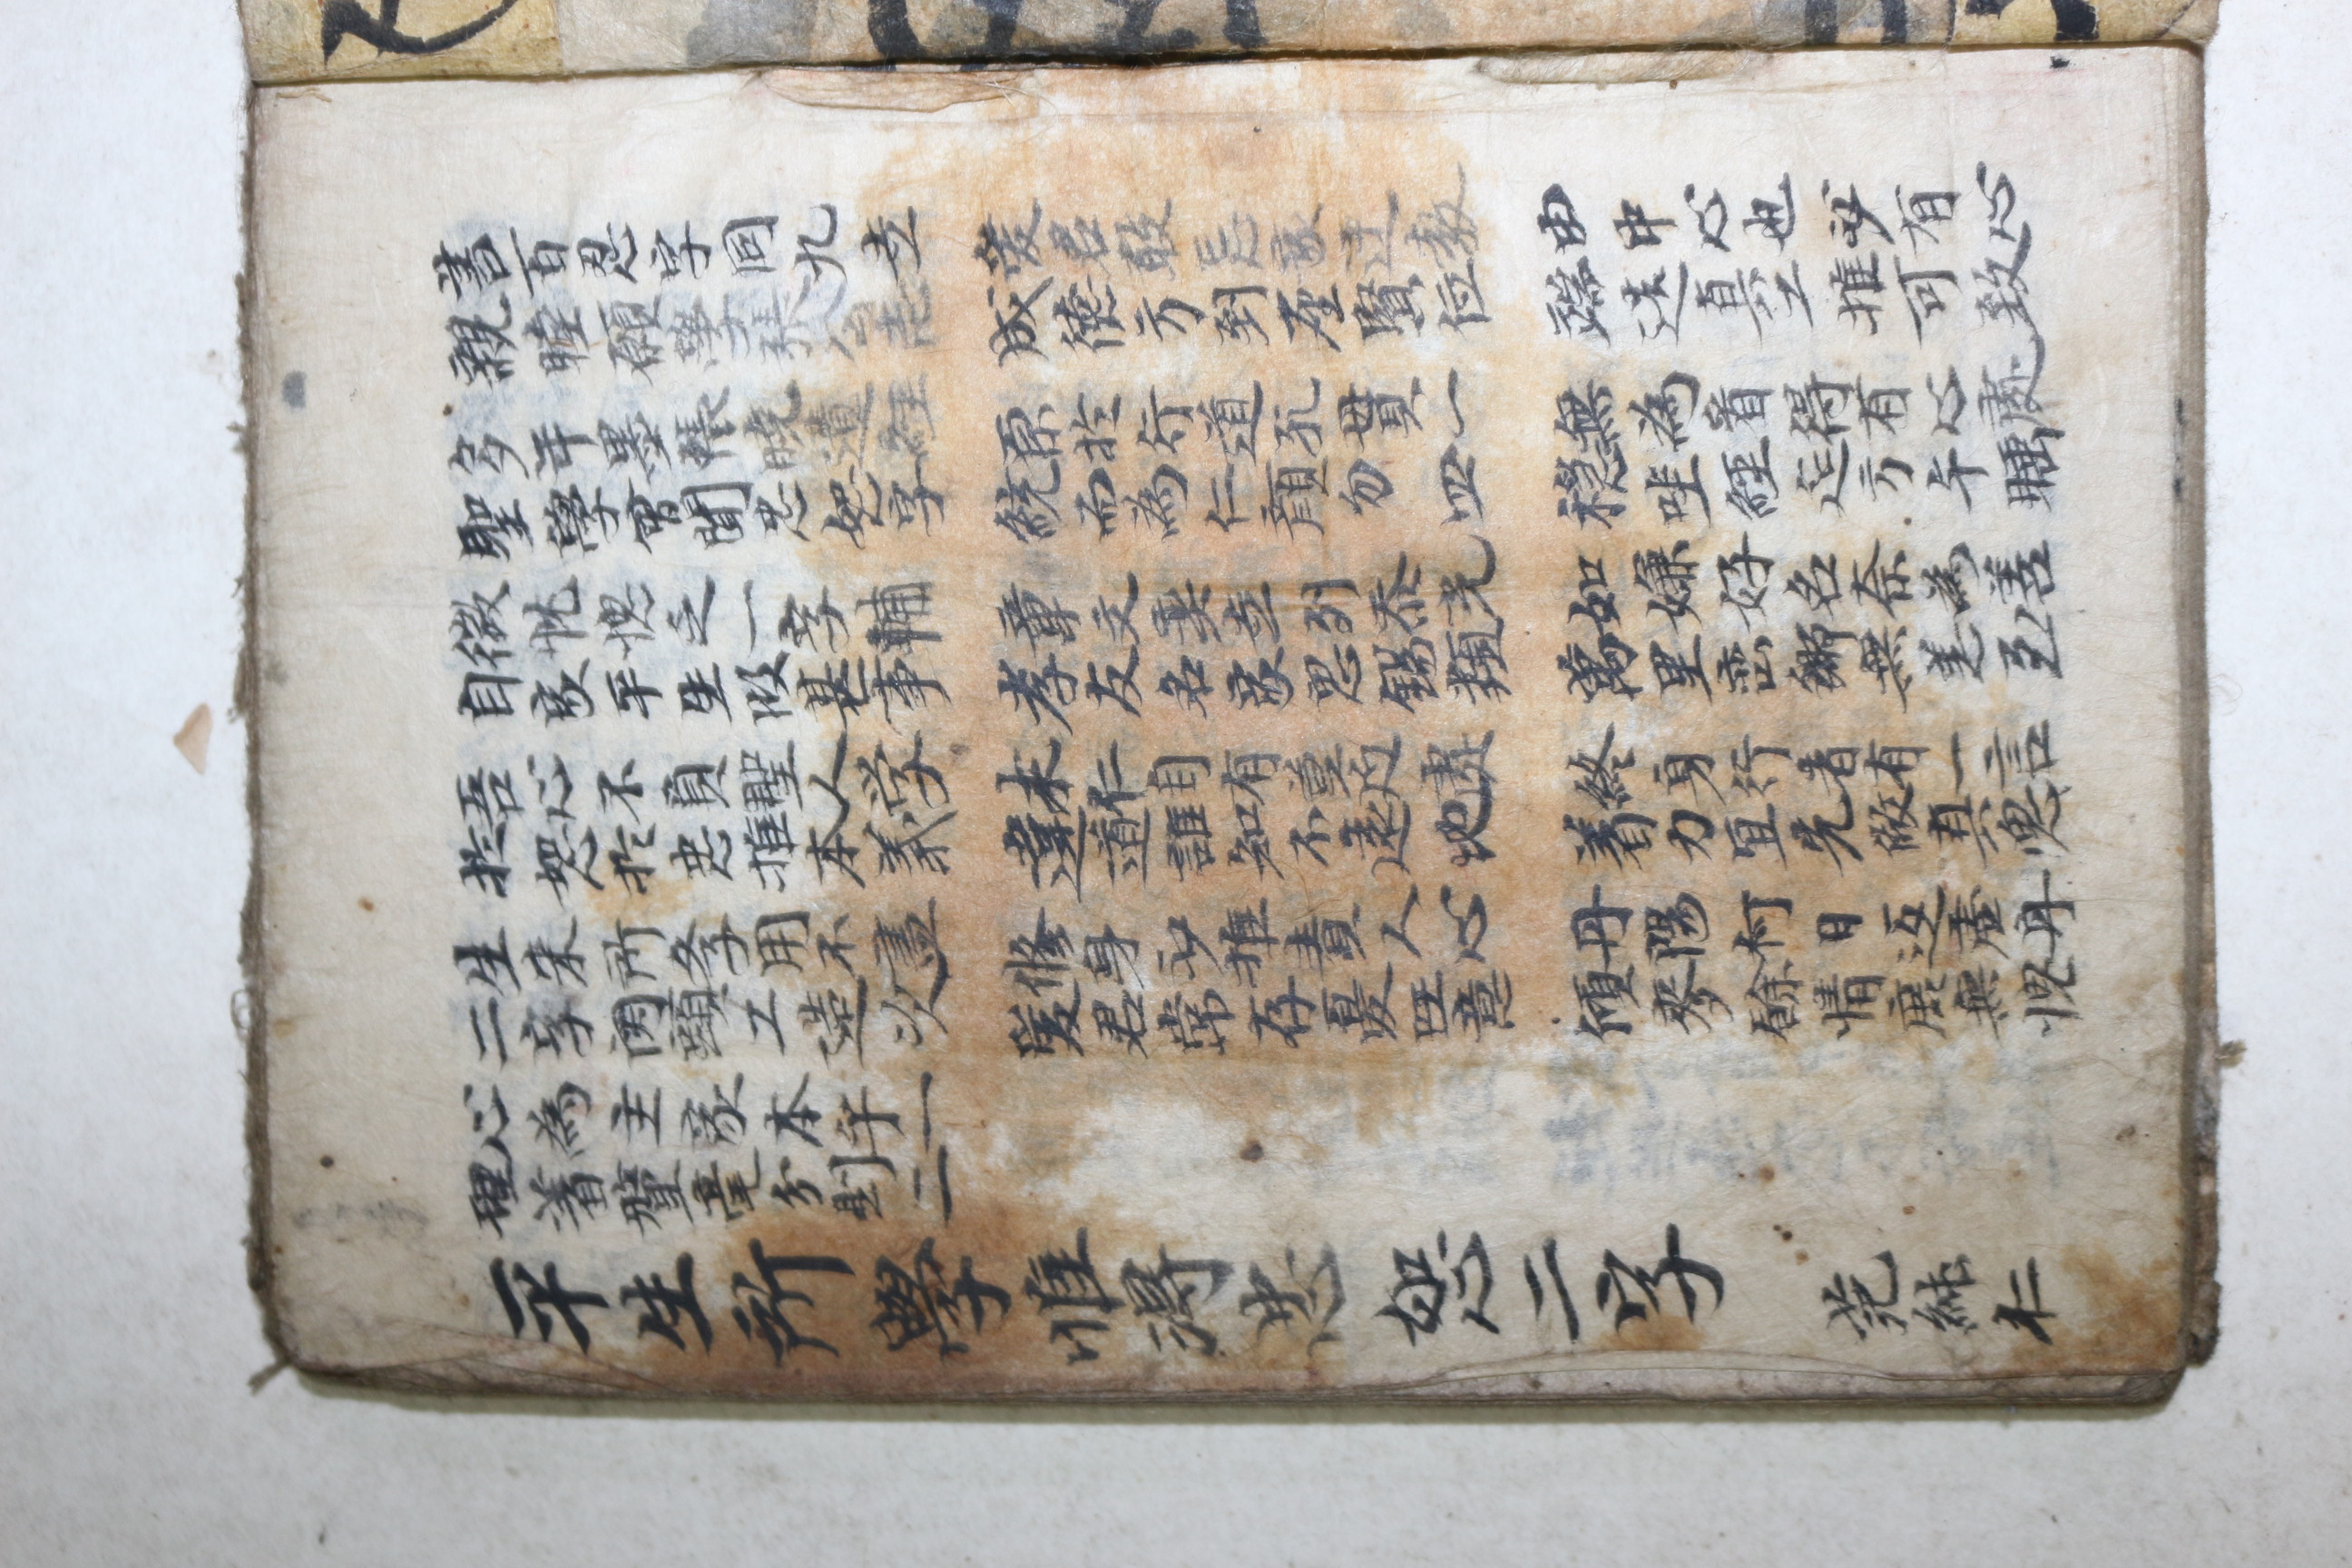 書百忍字同九立 愛君敢忘家迂教 由中心也必有心
親睦願學張公志 成德方到賢位 端造真工推可致
多年墨帳曉遺經 原於行道孔貫一 無為看得有心處
聖學曾聞忠恕字 統而為仁顏勿四 穩經方午睡
微忱愧乏一字輔 章文奕立列光 如嫌好名奈為善
自家平生做甚事 孝友名家思錫類 萬里巒鄉無恙至
吾心不負聖人学 未仁自有莫近處 終身行者有一言
於恕於忠推本義 違道誰知不遠地 着力宜先做真
生来所学用不盡 修身必推責人心 丹陽柯日返虛舟
二字関頭工造次 爱君常存憂意 傾麥餘情庶無愧
心為主家本乎一
理着釐毫分則二
平生所學惟得忠恕二字 范純仁